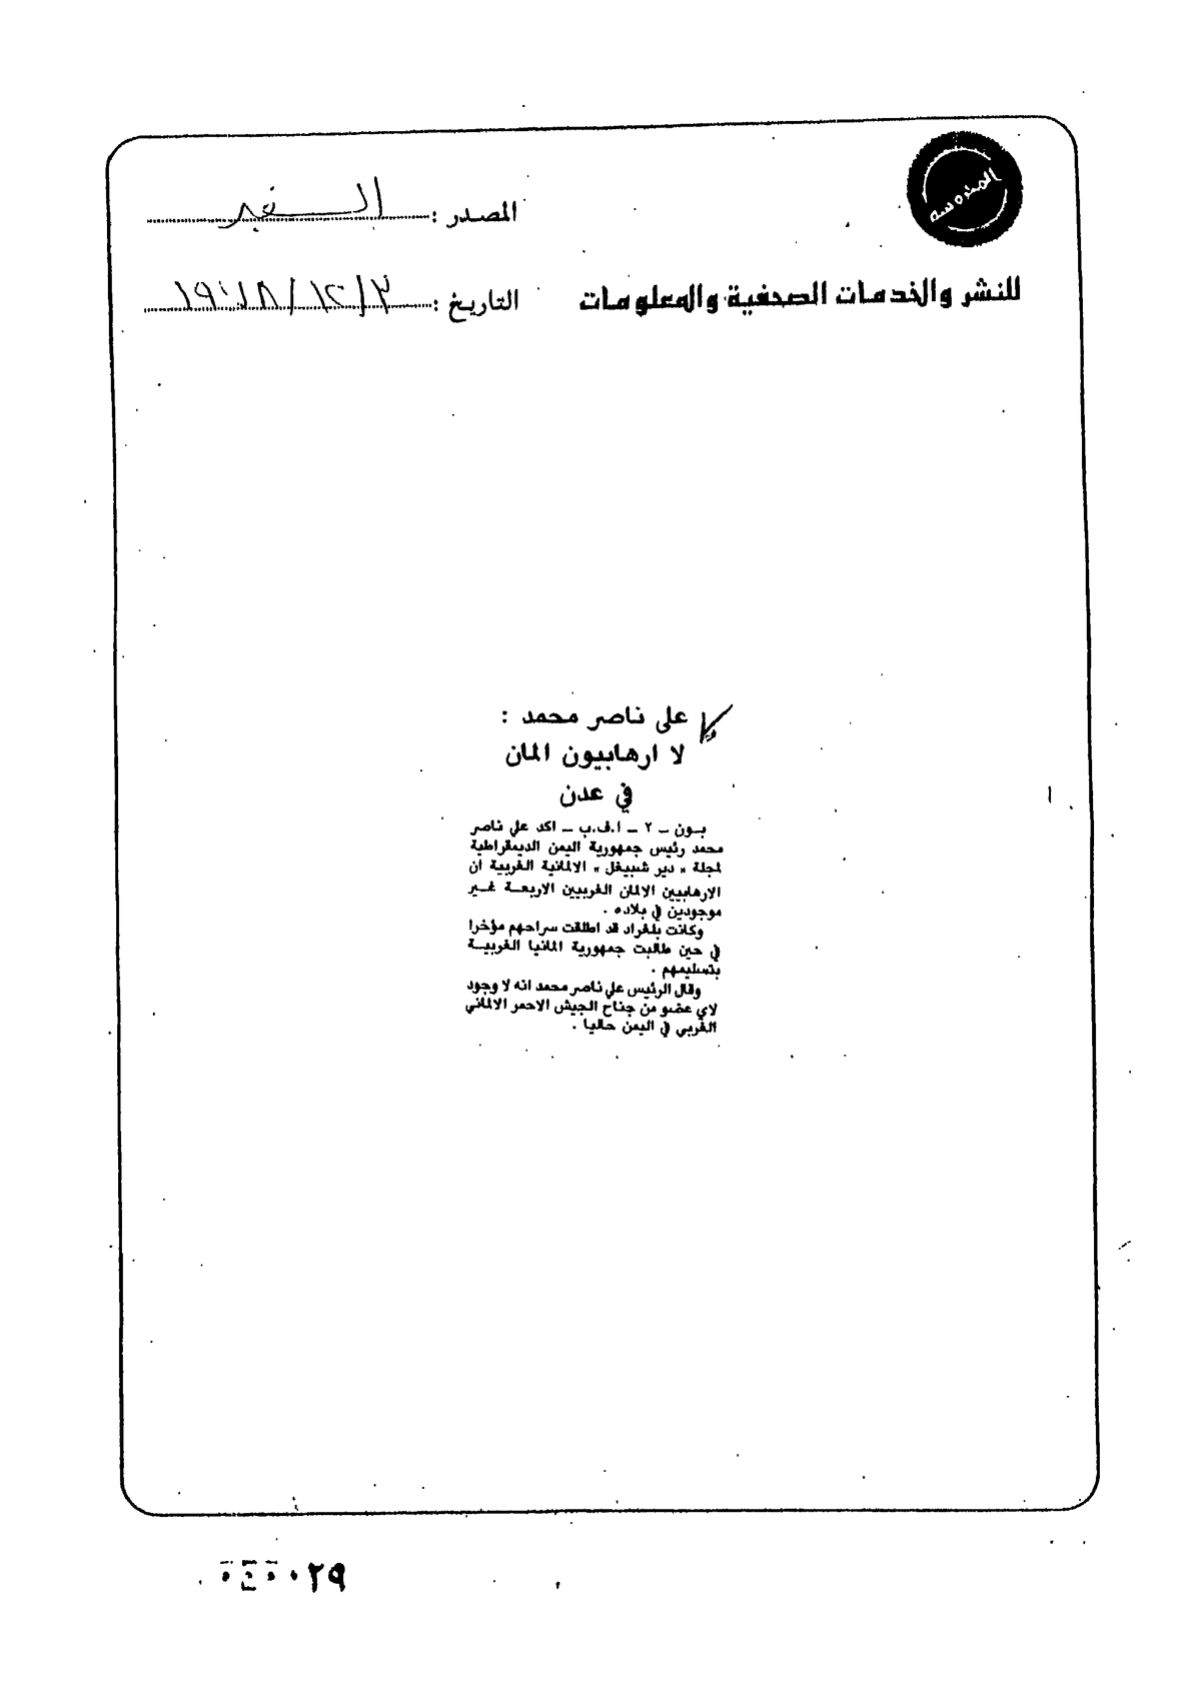 المحروسه
المصدر : السفير
للنشر والخدمات الصحفية والمعلومات
التاريخ : ١٩٧٨/١٢/٣
على ناصر محمد :
لا ارهابيون المان
في عدن
بـون ــ ٢ ــ ا.ف.ب ــ اكد علي ناصر
محمد رئيس جمهورية اليمن الديمقراطية
لمجلة « دير شبيغل » الالمانية الغربية ان
الارهابيين الالمان الغربيين الاربعـة غـير
موجودين في بلاده .
وكانت بلغراد قد اطلقت سراحهم مؤخرا
في حين طالبت جمهورية المانيا الغربيـة
بتسليمهم .
وقال الرئيس علي ناصر محمد انه لا وجود
لاي عضو من جناح الجيش الاحمر الالماني
الغربي في اليمن حاليا .